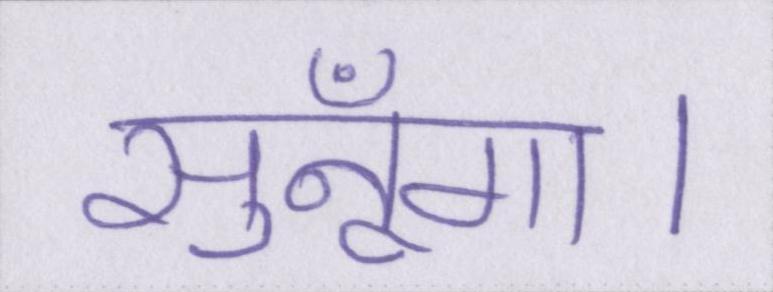 सुनूँगा।